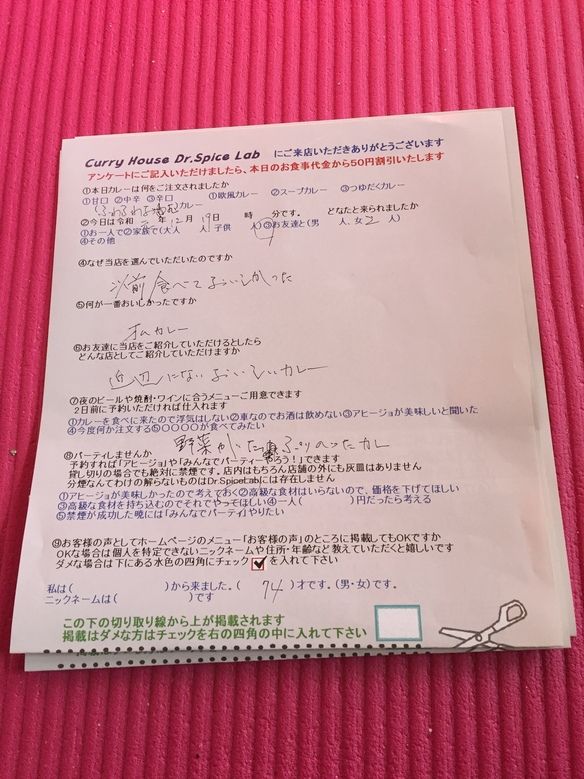 Curry House Dr.Spice Lab にご来店いただきありがとうございます
アンケートにご記入いただけましたら、本日のお食事代金から50円割引いたします
①本日カレーは何をご注文されましたか
①甘口 ②中辛 ③辛口 ①欧風カレー ②スープカレー ③つゆだくカレー
カレー
②今日は令和 年 12月 19日 時 分です。 どなたと来られましたか
①お一人で②家族で(大人 人 子供 人)③お友達と(男 人、女 2 人)
④その他
④なぜ当店を選んでいただいたのですか
以前食べておいしかった
⑤何が一番おいしかったですか
オムカレー
⑥お友達に当店をご紹介していただけるとしたら
どんな店としてご紹介していただけますか
近辺にないおいしいカレー
⑦夜のビールや焼酎・ワインに合うメニューご用意できます
2日前に予約いただければ仕入れます
①カレーを食べに来たので浮気はしない②車なのでお酒は飲めない③アヒージョが美味しいと聞いた
④今度何か注文する⑤〇〇〇〇が食べてみたい
野菜が ぷりのったカレー
⑧パーティしませんか
予約すれば「アヒージョ」や「みんなでパーティーやろう!」できます
貸し切りの場合でも絶対に禁煙です。店内はもちろん店舗の外にも灰皿はありません
分煙なんてわけの解らないものはDr.SpiceLabには存在しません
①アヒージョが美味しかったので考えておく②高級な食材はいらないので、価格を下げてほしい
③高級な食材を持ち込むのでそれでやってほしい④一人( )円だったら考える
⑤禁煙が成功した暁には「みんなでパーティ」やりたい
⑨お客様の声としてホームページのメニュー「お客様の声」のところに掲載してもOKですか
OKな場合は個人を特定できないニックネームや住所・年齢など教えていただくと嬉しいです
ダメな場合は下にある水色の四角にチェック を入れて下さい
私は( )から来ました。( 74 )才です。(男・女)です。
ニックネームは( )です
この下の切り取り線から上が掲載されます
掲載はダメな方はチェックを右の四角の中に入れて下さい